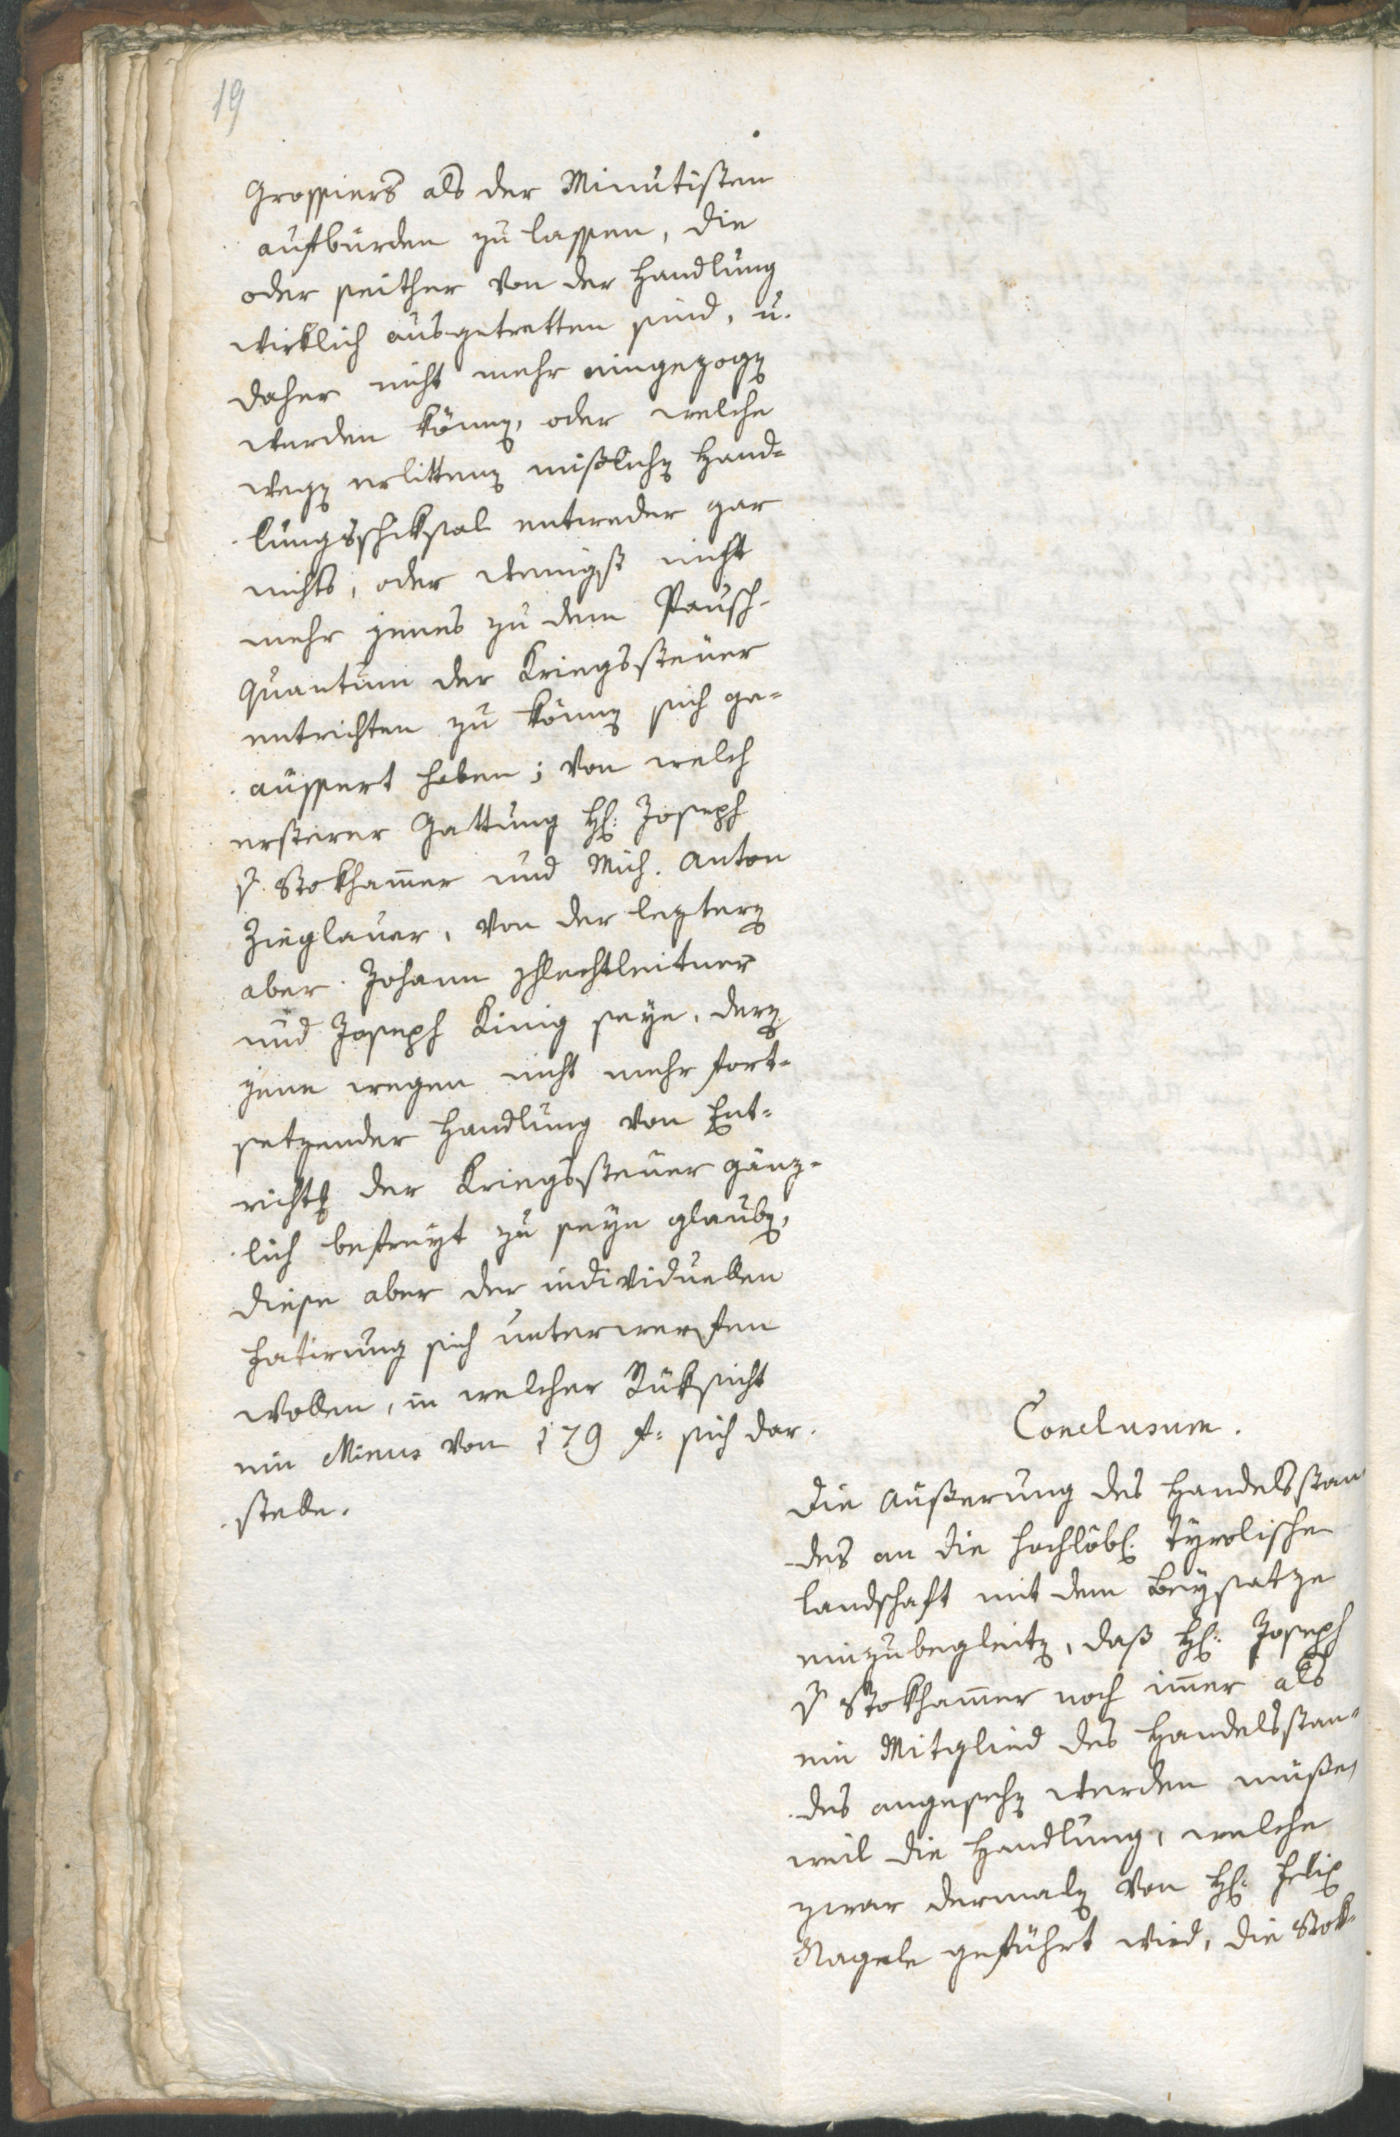 19
Grossiers als der Minutisten
aufbürden zu lassen, die
oder seither von der Handlung
wirklich ausgetretten sind, u.
daher nicht mehr eingezogen
werden können, oder welche
wegen erlittenen mißlichen Hand=
lungsschiksal entweder gar
nichts, oder wenigst nicht
mehr jenes zu dem Pausch-
quantum der Kriegssteuer
entrichten zu können sich ge=
äussert haben; von welch
ersterer Gattung H: Joseph
v. Stokhamer und Mich. Anton
Zieglauer, von der leztern
aber Johann Schlechtleitner
und Joseph Kinig seye, deren
jene wegen nicht mehr fort=
setzender Handlung von Ent=
richtung der Kriegssteuer gänz=
lich befreyt zu seyn glauben,
diese aber der individuellen
Fatirung sich unterwerffen
wollen, in welcher Rüksicht
ein Minus von 179 f: sich dar=
stelle.
Conclusum.
Die Äußerung des Handelsstan
des an die hochlöbl. tyrolische
Landschaft mit dem Beysatze
einzubegleiten, daß H: Joseph
v. Stokhamer noch imer als
ein Mitglied des Handelsstan=
des angesehen werden müße,
weil die Handlung, welche
zwar dermalen von H: Felix
Nagele geführt wird, die Stok=